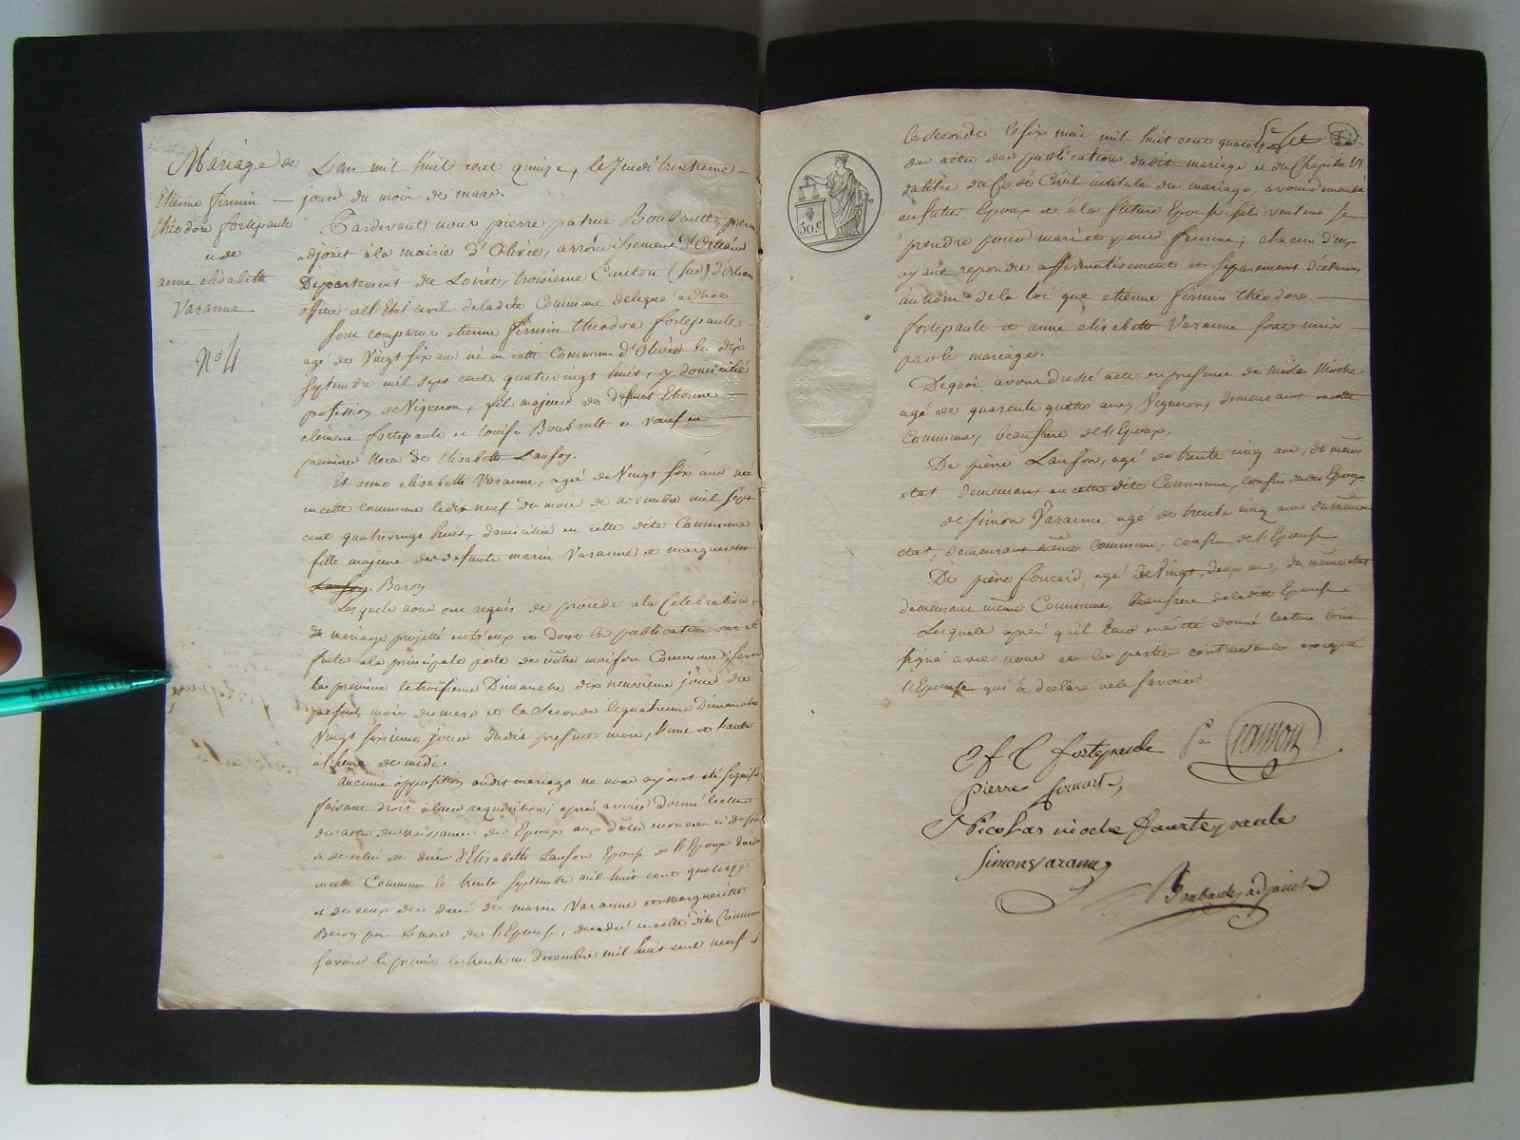 Mariage de
Etienne firmin
théodore fortepaule
et de
anne elisabeth
Varanne
No 4
L'an mil huit cent quinze, le Jeudi trentieme
jour du mois de mars.
Pardevant nous pierre patrice Boubault, premier
adjoint à la mairie d'Olivet, arrondissement d'Orléans
Département du Loiret troisieme Canton (sud) d'Orléans
officier de l'Etat civil de la dite Commune delegué ad hoc
sont comparus etienne firmin theodore fortepaule
agé de Vingt six ans né en cette Commune d'Olivet le dix
septembre mil sept cent quatrevingt huit, y domicilié
profession de Vigneron, fils majeur de defunt Etienne
etienne fortepaule et louise Boubault et veuf en
premiere Noce de Elisabeth Lanson.
Et anne elisabeth Varanne, agée de Vingt six ans née
en cette commune le dix neuf du mois de novembre mil sept
cent quatrevingt huit, domiciliée en cette dite Commune
fille majeure des defunts marin Varanne et marguerite
Baron
Lesquels nous ont requis de procéder à la Celebration
de mariage projetté entr'eux et dont les publications ont été
faites à la principale porte de nôtre maison Commune, savoir
la premiere le troisieme Dimanche dix neuvieme jour du
présent mois de mars et la seconde le quatrieme Dimanche
Vingt sixieme jour dudit present mois, l'une et l'autre
à l'heure de midi.
Aucune opposition audit mariage ne nous ayant été signifiée
faisant droit à leur requisition, après avoir donné lecture
des actes de naissance des Epoux
de celui de décès d'Elisabeth Lanson Epouse de l'Epoux
en cette Commune le trente septembre mil huit cent quatorze
et de ceux de décès de marin Varanne et marguerite
Baron pere & mere de l'Epouse, décédés en cette dite Commune
savoir le premier le trente un decembre mil huit cent neuf &
la seconde le six mai mil huit cent quatorze
des actes de publication dudit mariage et du Chapitre VI
du titre du Code Civil intitulé du mariage, avons demandé
au futur Epoux et à la future Epouse s'ils veulent se
prendre pour mari et pour femme, chacun d'eux
ayant repondu affirmativement et separement declarons
au nom de la loi que etienne firmin théodore
fortepaule et anne elisabeth Varanne sont unis
par le mariage.
De quoi avons dressé acte en presence de
agé de quarante quatre ans, Vigneron, demeurant en cette
Commune, beaufrere de l'Epoux.
De pierre Lanson, agé de trente cinq ans, de même
etat demeurant en cette dite Commune, cousin dudit Epoux
de simon Varanne agé de trente cinq ans de même
etat, demeurant même Commune, cousin de l'Epouse
De pierre foucard, agé de vingt deux ans, de même etat
demeurant même Commune, beaufrere de la dite Epouse
Lesquels après qu'il leur en a été donné lecture l'ont
signé avec nous et les parties contractantes excepté
l'Epouse qui a declaré ne le savoir
E f t fortepaule
Lanson
pierre foucart
Nicolas mioche fourtepaule
simon varanne
Boubault, adjoint
50.c